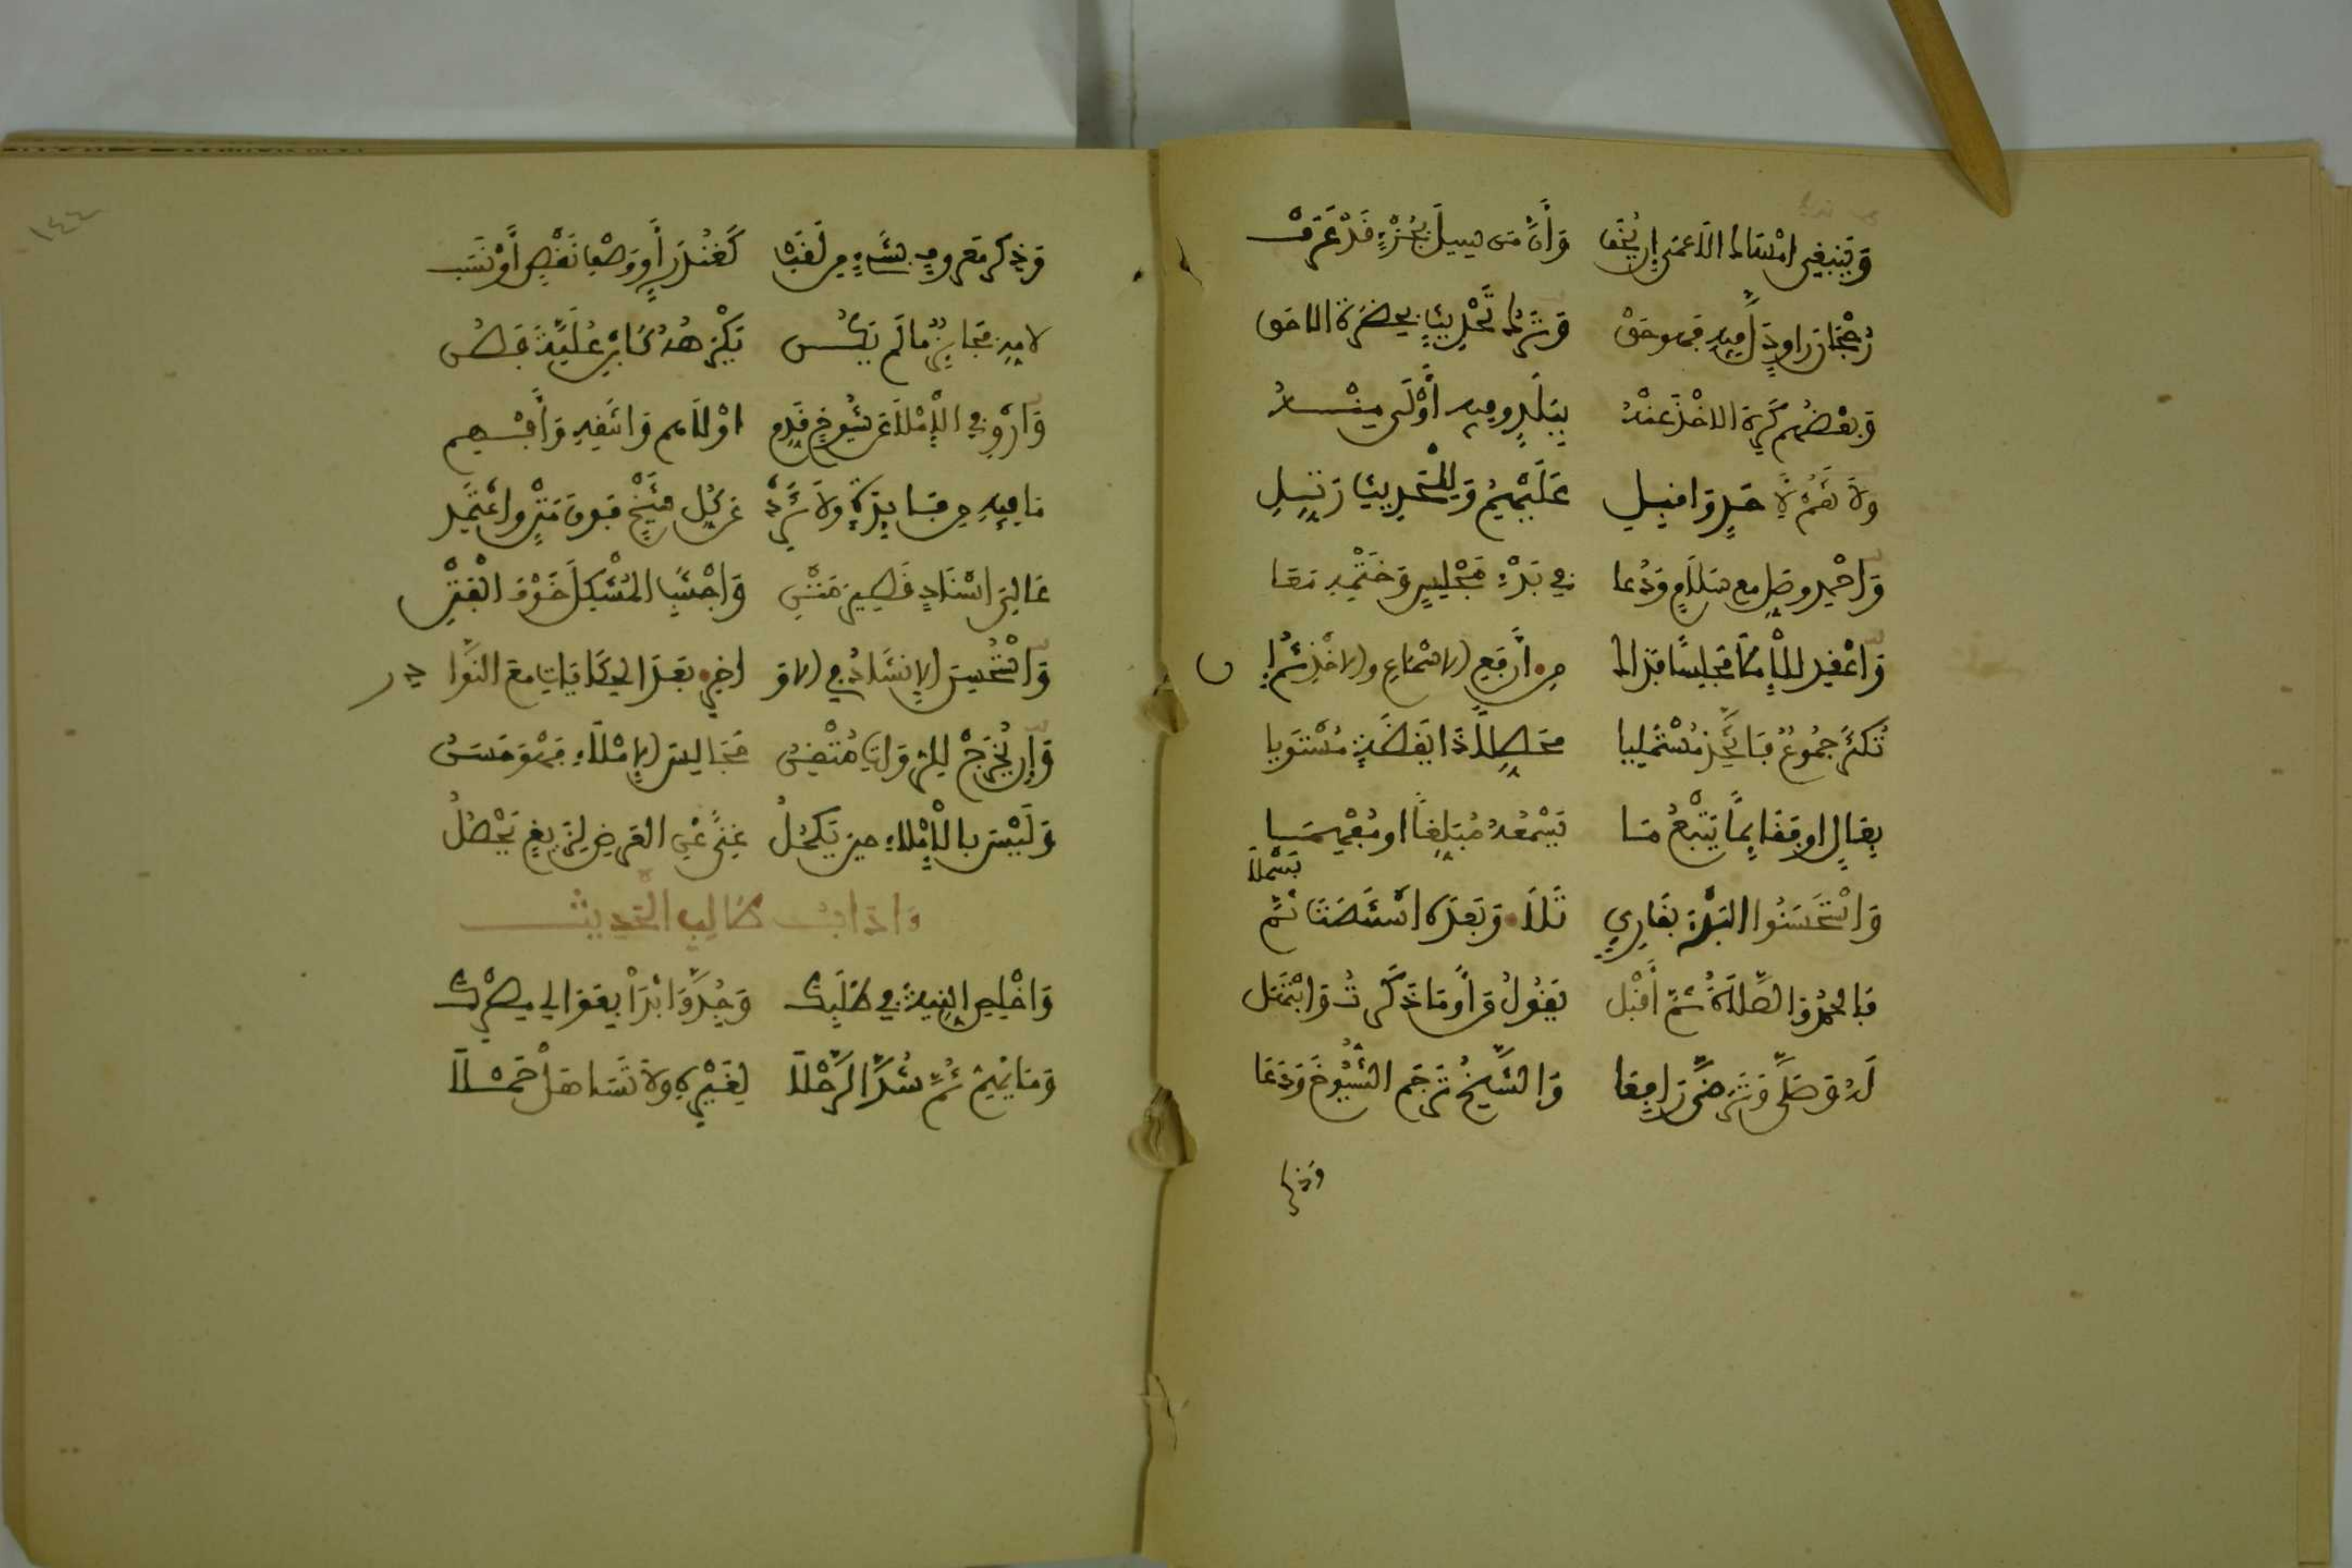 وَيَنبغي امْسَاك الاَعمى إن يُخَف وَأنَّ مَن سِيلَ بجُزْءٍ قَدْ عَرَفْ
رُجْحَانَ راوٍ دَلَّ فِيهِ فهو حَقْ وَتَرْك تَحْدِيثٍ بِحَضْرَة الاحَق
وَبعْضُهم كَرِهَ الاخْذَ عَنْهُ بِبَلَدٍ وفيه أَوْلَى مِنْهُ
ولاَ تَقُمْ لِأَحَدٍ وَاقبِلِ عَلَيْهِمُ وَلِلْحَدِيثِ رَتِّلِ
وَاحْمِد وصَلِّ مع سَلاَمٍ وَدُعَا في بَدْءِ مَجْلِسٍ وَخَتْمِه مَعَا
وَاعْقِد لِلإِمْلاَ مَجلِسًا فَذَاك مِن أَرْفَعِ الاسْمَاعِ والاخْذِ ثُمَّ إِن
تُكْثَرْ جمُوعٌ فَاتَّخِذ مُسْتَمْلِيا مُحَصِّلاً ذَا يَقَظَةٍ مُسْتَوِيا
بِعَالٍ او فَقَائِمًا يَتْبَعُ مَا يَسْمَعُهُ مُبَلِّغًا او مُفْهِمَا
وَاسْتَحْسَنُوا البَدْءَ بقَارِئٍ تَلاَ وَبَعْدَه اسْتَنْصَتَ ثُمَّ بَسْمَلاَ
فَالحَمْدُ فَالصَّلاَةُ ثمَّ أَقْبَل يَقُولُ مَن أَوْ مَا ذَكَرْتَ وَابْتَهَل
لَهُ وَصَلَّى وَتَرَضَّى رَافِعَا وَالشَّيخُ تَرجَم الشُّيُوخَ وَدَعَا
وذكر
وَذِكر مَعروفٍ بِشَيْءٍ مِن لَقَب كَغُنْدَرٍ أَو وَصْفِ نَقْصٍ أَوْ نَسَب
لامِه فَجَائِزٌ مَا لَم يَكُن يَكْرَهُهُ كَابْنِ عُلَيَّةَ فَصُن
وَارْوِ في الإِمْلاَ عَن شُيُوخٍ قَدِّم اوْلاَهم وَانتَقِهِ وَأَفْهِم
مَا فِيهِ مِن فَايِدَةٍ وَلاَ تَزِدْ عَن كُلِّ شَيْخٍ فَوقَ مَتْنٍ وَاعْتَمِد
عَالِيَ إسْنَادٍ قَصِيرِ مَتْنِ وَاجْتَنِبِ المُشْكِلَ خَوْفَ الفَتْنِ
وَاسْتُحْسِنَ الإنشَادُ في الاوَ اخِرِ بَعْدَ الحِكَايَاتِ مَعَ النَّوَا دِر
وَإن يُخَرِّجْ لِلرُّوَاةِ مُتْقِنُ مَجَالِسَ الإمْلاَءِ فَهْوَ حَسَنُ
وَلَيْسَ بالإِمْلاءِ حِينَ يَكمُلُ غِنًى عَنِ العَرضِ لِزَيغٍ يَحْصُلُ
وَاداب طَالِبِ الحَدِيث
وَاخْلِصِ النِيةَ في طَلَبِكَ وَجِدَّ وَابْدَأْ بِعَوَالِي مِصْرِكَ
وَمَا يُهِمُّ ثُمَّ شُدَّ الرَّحْلاَ لِغَيْرِهِ وَلاَ تَسَاهَلْ حَمْلاَ
١٤٤